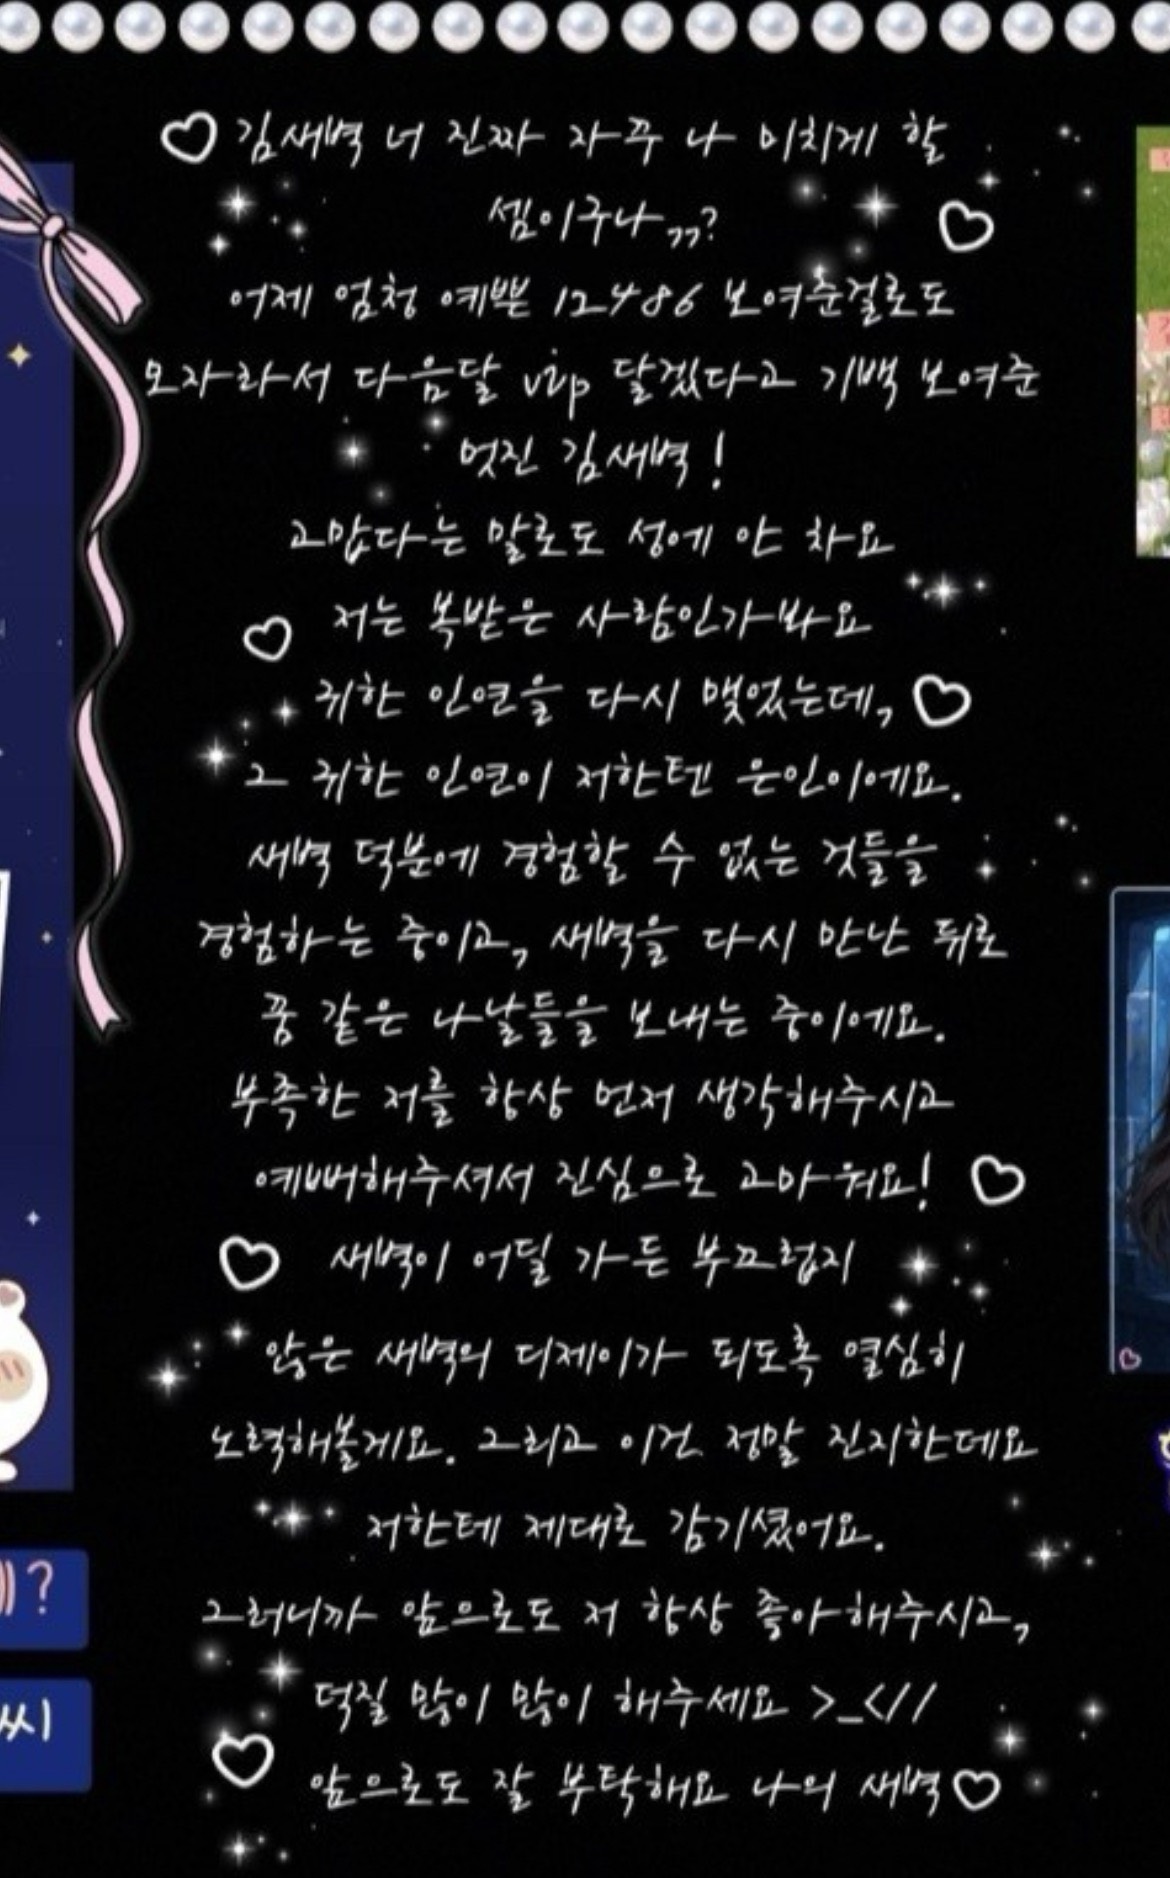 김새벽 너 진짜 자꾸 나 미치게 할
셈이구나,,?
어제 엄청 예쁜 12486 보여준걸로도
모자라서 다음달 vip 달겠다고 기백 보여준
멋진 김새벽!
고맙다는 말로도 성에 안 차요
저는 복받은 사람인가봐요
귀한 인연을 다시 맺었는데,
그 귀한 인연이 저한텐 은인이에요.
새벽 덕분에 경험할 수 없는 것들을
경험하는 중이고, 새벽을 다시 만난 뒤로
꿈 같은 나날들을 보내는 중이에요.
부족한 저를 항상 먼저 생각해주시고
예뻐해주셔서 진심으로 고마워요!
새벽이 어딜 가든 부끄럽지
않은 새벽의 디제이가 되도록 열심히
노력해볼게요. 그리고 이건 정말 진지한데요
저한테 제대로 감기셨어요.
그러니까 앞으로도 저 항상 좋아해주시고,
덕질 많이 많이 해주세요 >_<//
앞으로도 잘 부탁해요 나의 새벽
?
씨